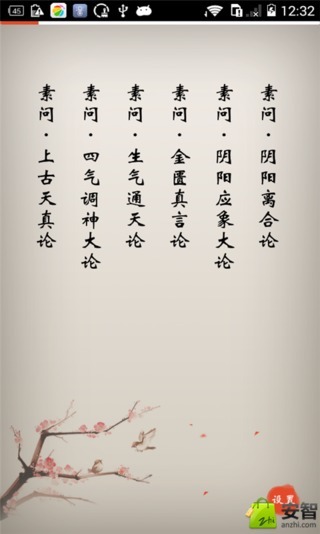 45
12:32
素问·上古天真论
素问·四气调神大论
素问·生气通天论
素问·金匮真言论
素问·阴阳应象大论
素问·阴阳离合论
设置
安智
anzhi.com